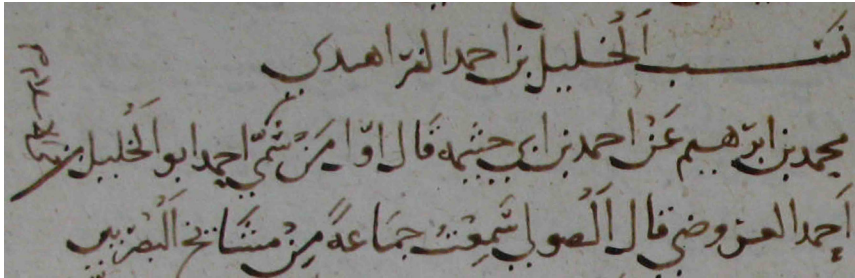 نَسَب اَلْخليل بن احمد الفراهيدي
محمد بن ابرهيم عَنْ احمد بن ابي خيثمة قَال اوّل مَنْ سُمّيَ احمد ابو الخليل بن
اَحمد العروضي قال اَلْصولي سَمِعْتُ جمَاعةً مِنْ مشَايخ اَلْبصريين